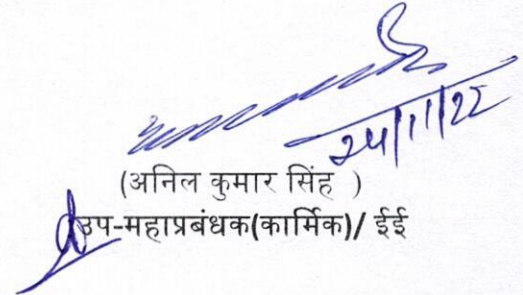 24/11/22
(अनिल कुमार सिंह )
उप-महाप्रबंधक(कार्मिक)/ ईई